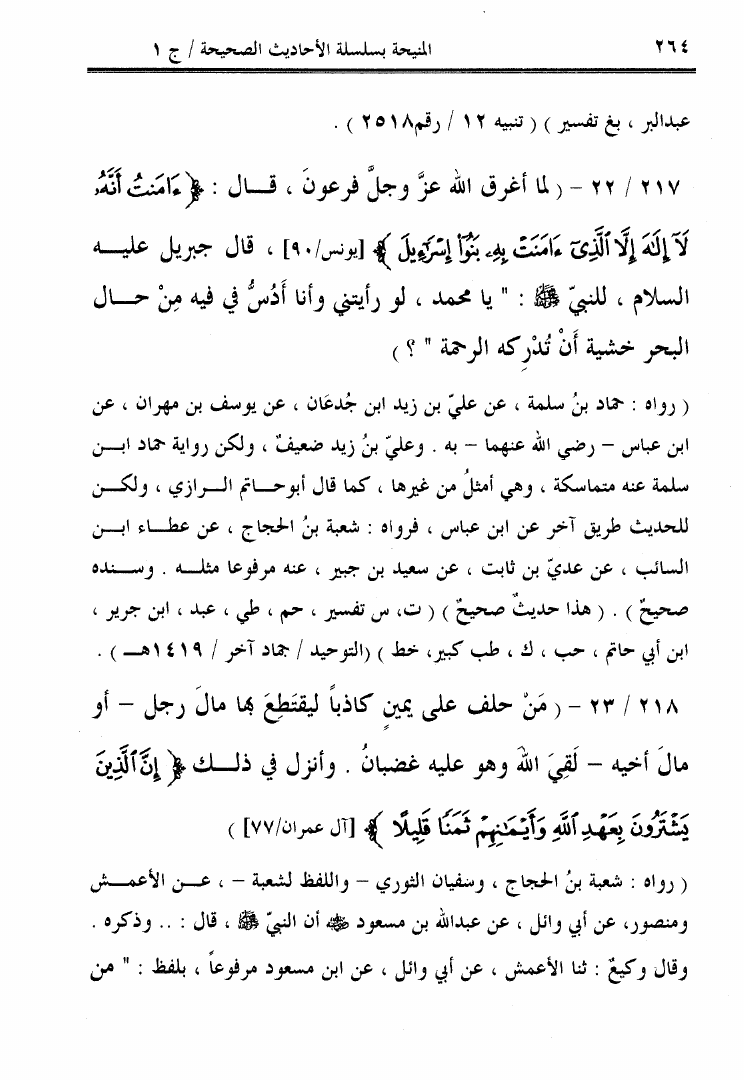 ٢٦٤ المنيحة بسلسلة الأحاديث الصحيحة / ج ١
عبدالبر ، بغ تفسير ) ( تنبيه ١٢ / رقم٢٥١٨ ) .
٢١٧ / ٢٢ – ( لما أغرق الله عزَّ وجلَّ فرعونَ ، قـــال : ﴿ ءَامَنتُ أَنَّهُۥ
لَآ إِلَٰهَ إِلَّا ٱلَّذِىٓ ءَامَنَتْ بِهِۦ بَنُوٓا۟ إِسْرَٰٓءِيلَ ﴾ [يونس/٩٠] ، قال جبريل عليـــه
السلام ، للنبيّ ﷺ : " يا محمد ، لو رأيتني وأنا أَدُسُّ في فيه مِنْ حـــال
البحر خشية أَنْ تُدْرِكه الرحمة " ؟ )
( رواه : حماد بنُ سلمة ، عن عليّ بن زيد ابن جُدعَان ، عن يوسف بن مهران ، عن
ابن عباس – رضي الله عنهما – به . وعليّ بنُ زيد ضعيفٌ ، ولكن رواية حماد ابـــن
سلمة عنه متماسكة ، وهي أمثلُ من غيرها ، كما قال أبوحـــاتم الـــرازي ، ولكـــن
للحديث طريق آخر عن ابن عباس ، فرواه : شعبة بنُ الحجاج ، عن عطـــاء ابـــن
السائب ، عن عديّ بن ثابت ، عن سعيد بن جبير ، عنه مرفوعا مثلـــه . وســـنده
صحيحٌ ) . ( هذا حديثٌ صحيحٌ ) ( ت، س تفسير ، حم ، طي ، عبد ، ابن جرير ،
ابن أبي حاتم ، حب ، ك ، طب كبير، خط ) (التوحيد / جماد آخر / ١٤١٩هـــ ) .
٢١٨ / ٢٣ – ( مَنْ حلف على يمينٍ كاذباً ليقتَطِعَ بها مالَ رجل – أو
مالَ أخيه – لَقِيَ اللهَ وهو عليه غضبانُ . وأنزل في ذلـــك ﴿ إِنَّ ٱلَّذِينَ
يَشْتَرُونَ بِعَهْدِ ٱللَّهِ وَأَيْمَٰنِهِمْ ثَمَنًا قَلِيلًا ﴾ [آل عمران/٧٧] )
( رواه : شعبة بنُ الحجاج ، وسفيان الثوري – واللفظ لشعبة – ، عـــن الأعمـــش
ومنصور، عن أبي وائل ، عن عبدالله بن مسعود ﷺ أن النبيّ ﷺ ، قال : .. وذكره .
وقال وكيعٌ : ثنا الأعمش ، عن أبي وائل ، عن ابن مسعود مرفوعاً ، بلفظ : " من